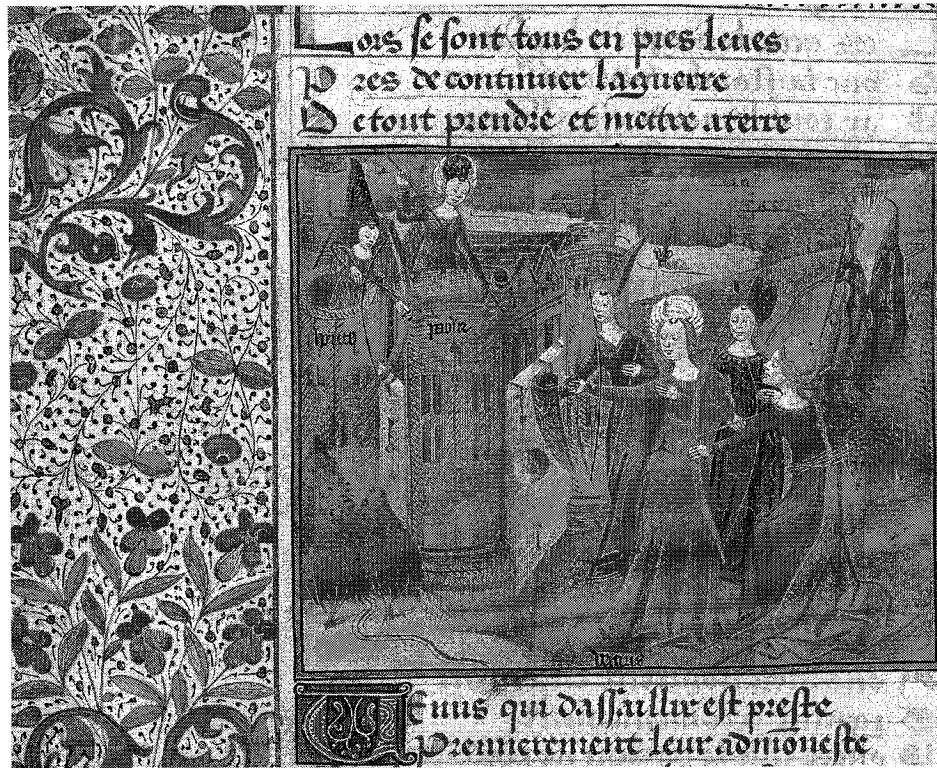 Lors se sont tous en pies leues
Pres de continuer la guerre
De tout prendre et mettre a terre
paour
Venus
Venus qui dassaillir est preste
Premierement leur admoneste